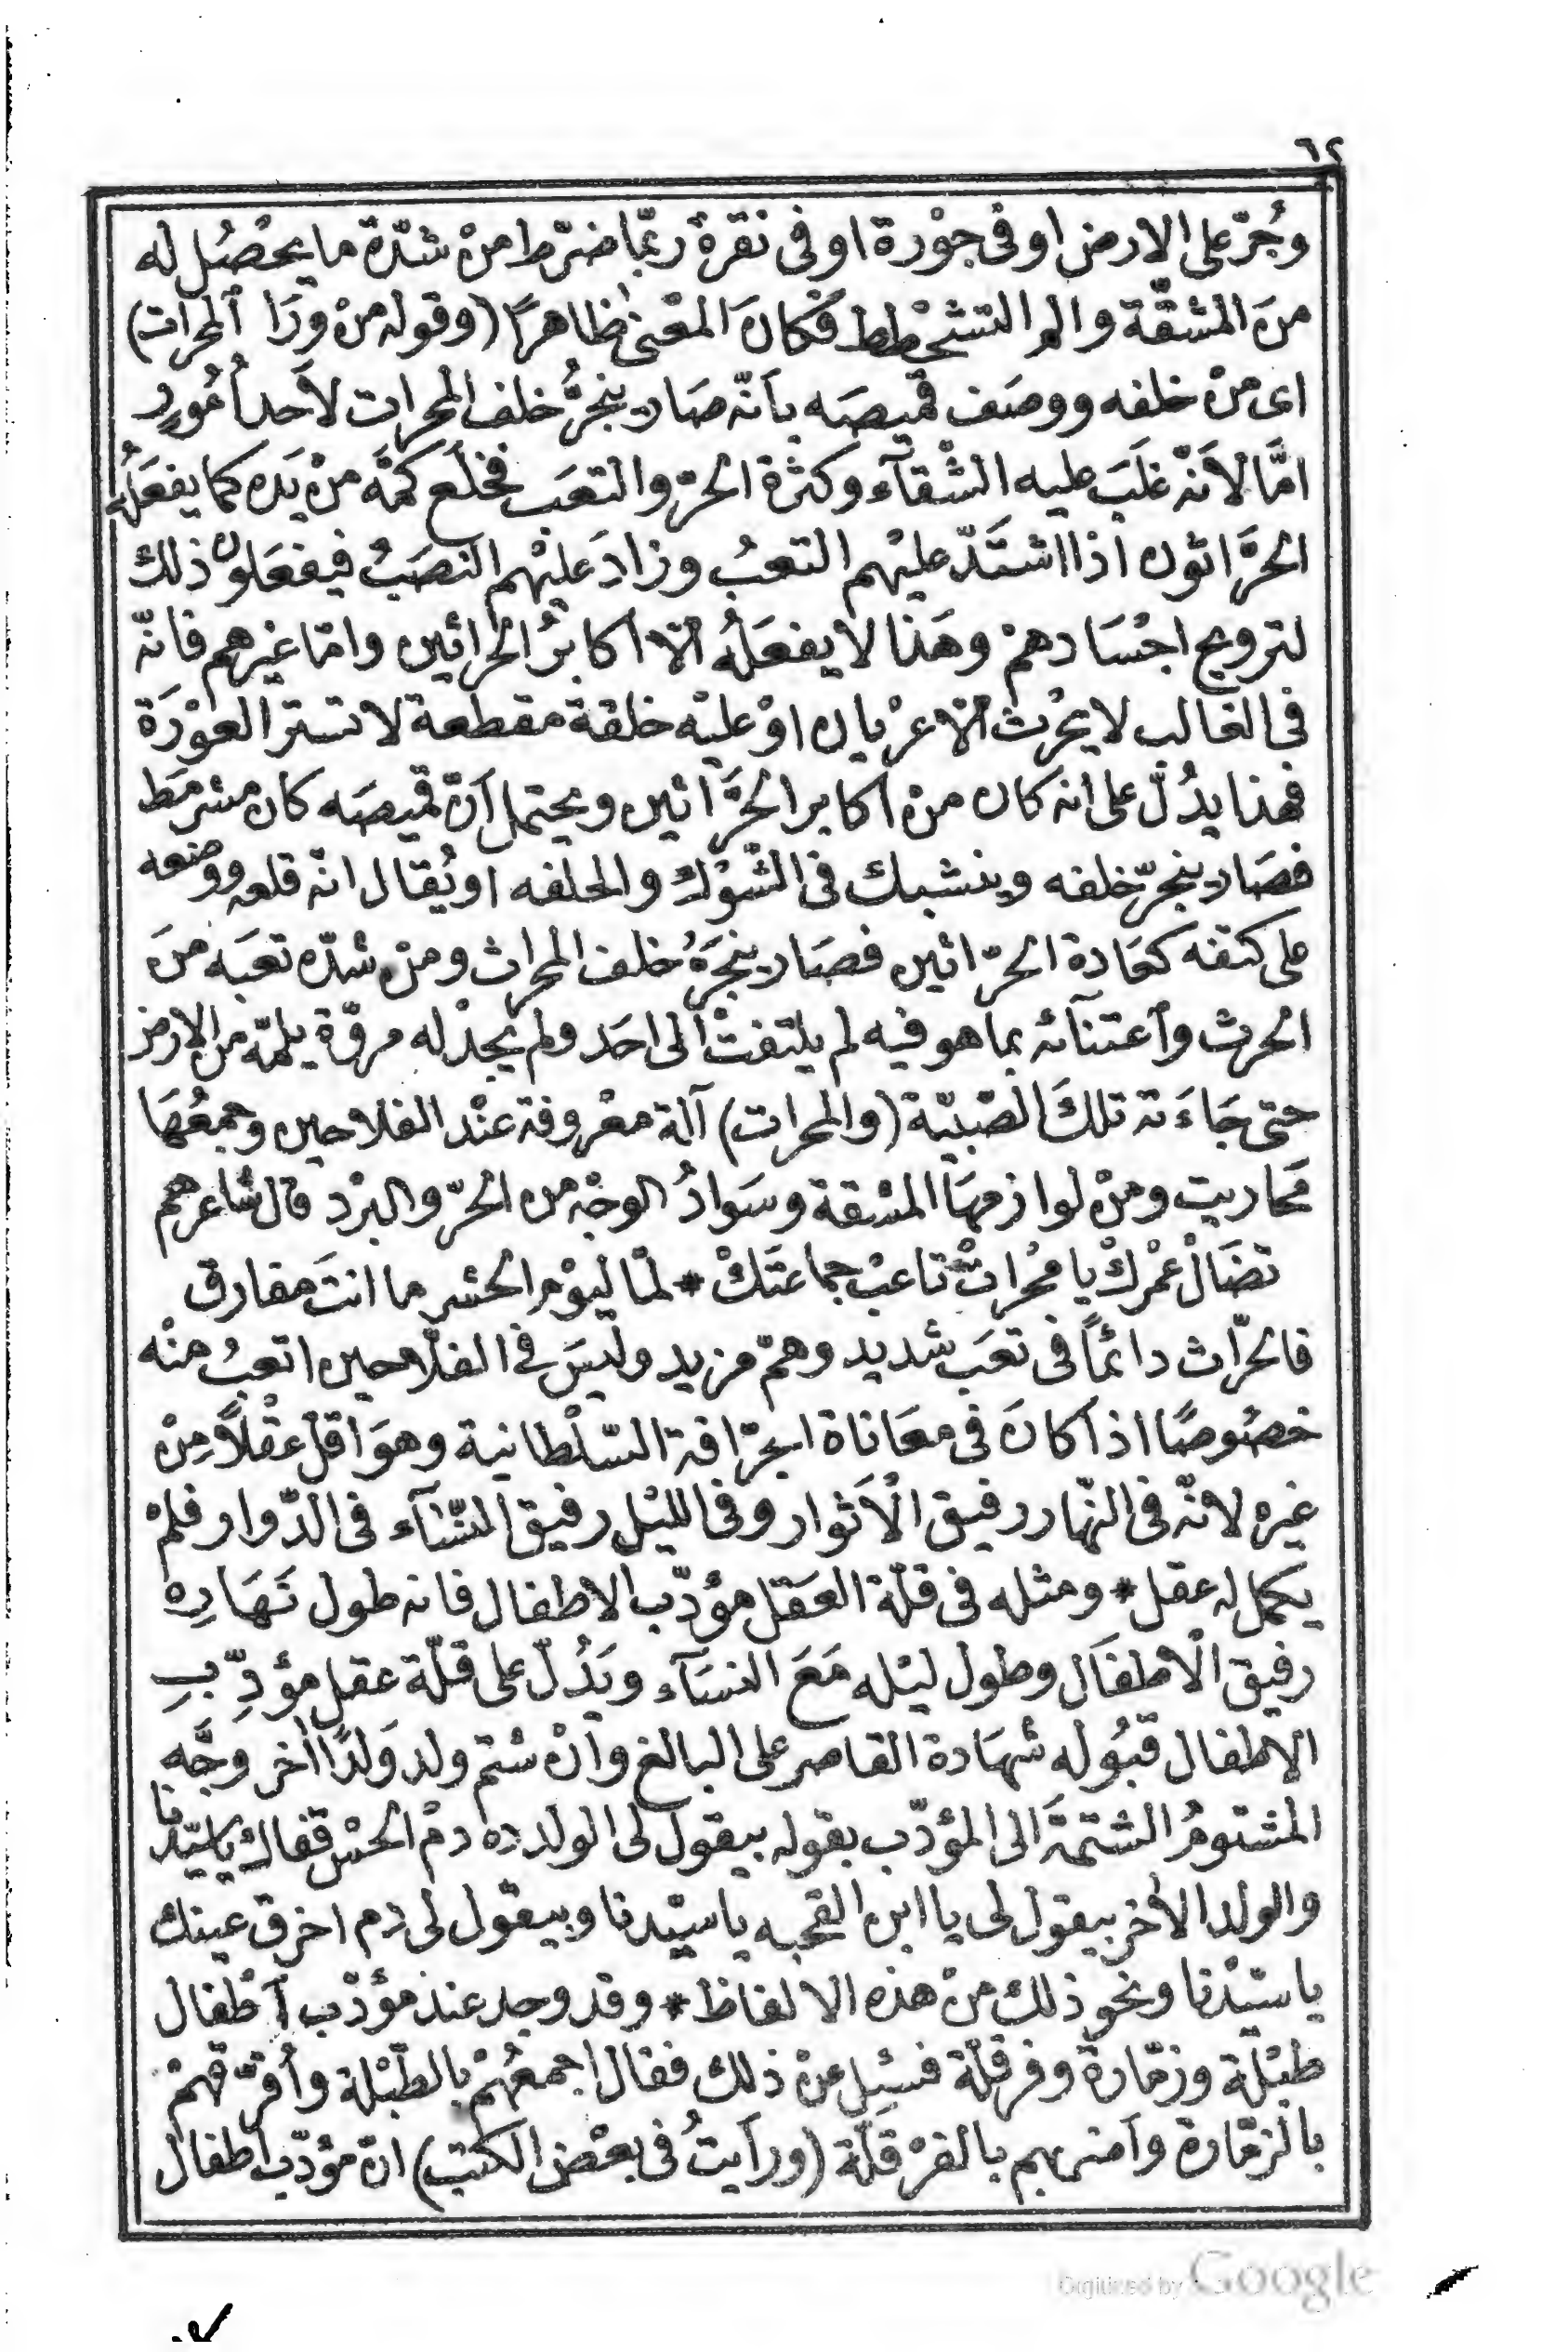 ٦٢
وجُرّ على الارض او فى جوْرة او فى نقرة ربّما ضرّط منْ شدّة ما يحْصُل له
منَ المشقّة والم التشحْطط فكانَ المعْنىٰ ظاهرًا (وقوله منْ ورَا المحرات)
اى منْ خلفه ووصَف قميصَه بأنّه صَار ينجرُّ خلف المحرات لأحد أُمُورٍ
امَّا لأنّه غلَبَ عليه الشْقآء وكثْرة الحرّ والتعَب فخلَع كمّه منْ يَده كما يفعَلُه
الحرَّاثون اذا اشتَدّ عليْهم التعبُ وزادَ عليْهم النصَبُ فيفعَلون ذلك
لترويح اجْسَادهمْ وهَذا لا يفعَلُه الّا اكابرُ الحراثين وامّا غيْرهم فانّه
فى الغالب لا يحْرث الّا عرْيان اوْ عليْه خلقة مقطعة لا تستر العوْرَة
فهذا يدُلّ على انه كان منْ اكابر الحرَّاثين ويحتمل أنّ قميصَه كان مشرمَط
فصَار ينجرّ خلفه وينشبك فى الشّوْك والحلفه او يُقال انّه قلعه ووضعه
على كتفه كعَادة الحرّاثين فصَار ينجرُّ خلف المحراث ومنْ شدّه تعبَه منَ
الحرث وآعتنآئه بما هو فيه لم يلتفتْ الى احَد ولم يجدْ له مروّة يلمّه من الارض
حتى جَاءَته تلكَ الصّبيّة (والمحرات) آلة معْروفة عنْد الفلاحين وجمعُهَا
محَاريت ومنْ لوازمهَا المشقة وسَوادُ الوجْه من الحرّ والبرْد قال شاعرهم
تضَالْ عُمْركْ يا محْراتْ تاعبْ جماعتَكْ * لمّا ليوْم الحشر ما انتَ مفارق
فالحرّاث دائماً فى تعَب شديد وهمّ مزيد وليسَ فى الفلّاحين اتعبُ منْه
خصُوصًا اذا كانَ فى معَاناة الجرّافة السّلْطانية وهوَ اقلْ عقْلاً مِنْ
غيره لانّه فى النّهار رفيق الأثوار وفى الليْل رفيق النسَآء فى الدّوار فلمْ
يكمل له عقل * ومثله فى قلّة العَقل مؤدّب الاطفال فانه طول نَهَارِه
رفيق الْاطفَال وطول ليْله مَعَ النسَآء ويَدُلّ على قلّة عقل مؤدِّبِ
الاطفال قبُوله شهَادة القاصر على البالغ وانْ شتم ولد ولدًا آخر وَجَّه
المشتومُ الشتمةَ الى المؤدّب بقوله بيقول لى الولد ده دمْ الحسْ قفاك يا سيّدنا
والولد الأخر بيقول لى يا ابن القحبه يا سيّدنا وبيقول لى دم اخرق عينك
يا سيّدْنا ونحو ذلك منْ هذه الالفاظ * وقد وجد عند مؤدّب آطْفال
طبْلة وزمّارة وفرقلّة فسُئِل عنْ ذلك فقال اجمعُهمْ بالطّبْلة واُفرّقهمْ
بالزمّارة واضربهم بالفرْقلّة (ورأيتُ فى بعْض الكتب) انّ مؤدّب اطفال
Digitized by Google